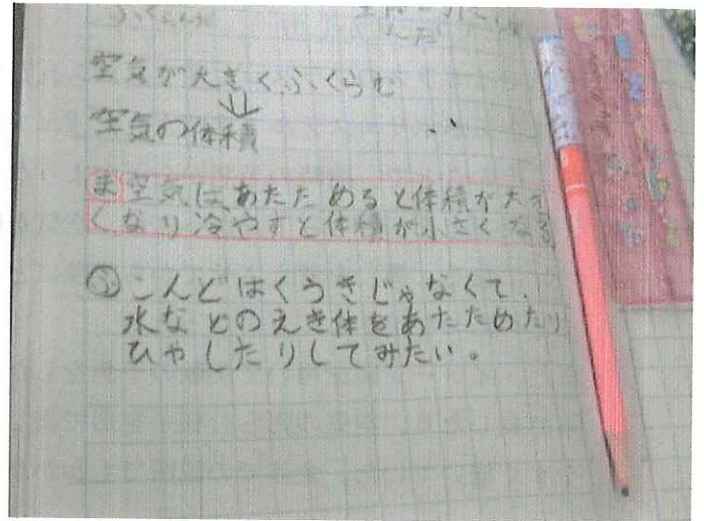 空気が大きくふくらむ
空気の体積
ま 空気は、あたためると体積が大き
くなり冷やすと体積が小さくなる
こんどはくうきじゃなくて、
水などのえき体をあたためたり
ひやしたりしてみたい。